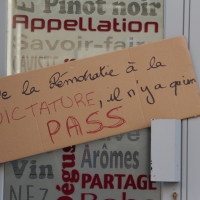 Pinot noir
Appellation
Savoir-fair
De la Démocratie à la
DICTATURE, il n'y a qu'un
PASS
Arômes
Vin
PARTAGE
NEZ
Robe